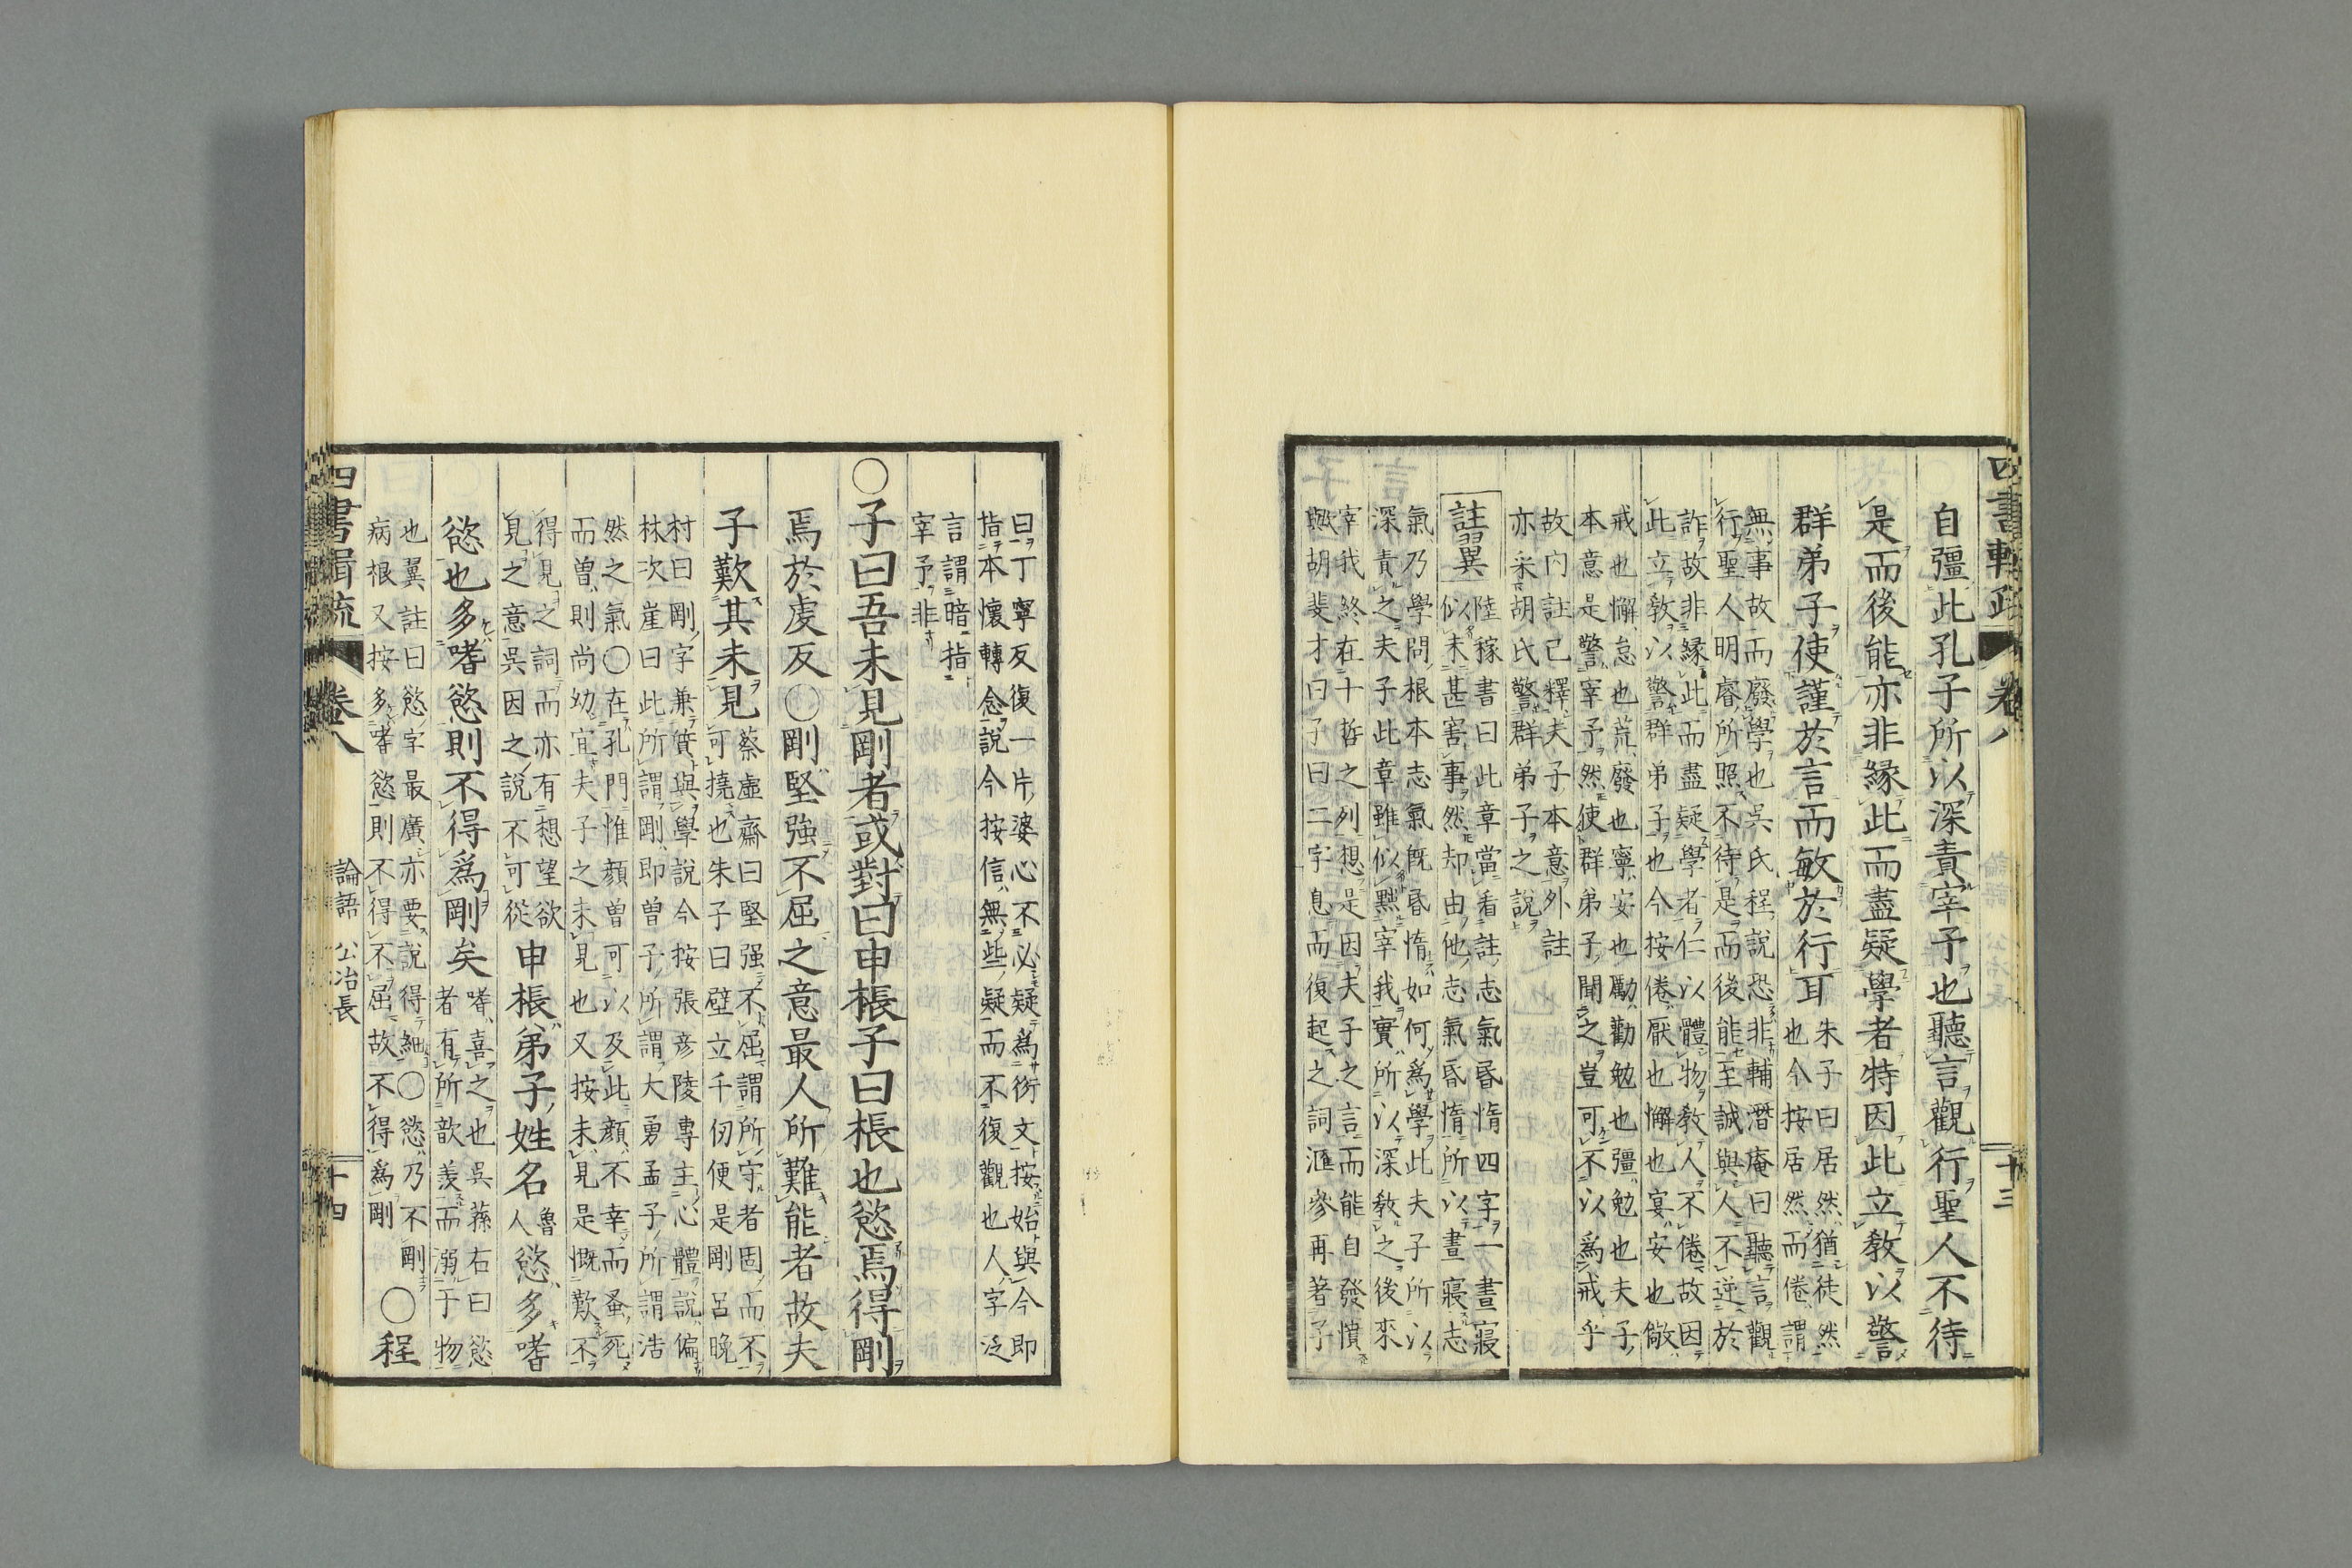 四書輯疏 卷八 十三
自彊此孔子所以深責宰予也聽言觀行聖人不待
是而後能亦非緣此而盡疑學者特因此立教以警
群弟子使謹於言而敏於行耳
朱子曰居然猶徒然
也今按居然而倦謂
無事故而廢學也吳氏程說恐非輔潛庵曰聽言觀
行聖人明睿所照不待是而後能至誠與人不逆於
詐故非緣此而盡疑學者仁以體物教人不倦故因
此立教以警群弟子也今按倦厭也懈也宴安也儆
戒也懈怠也荒廢也寧安也勵勸勉也彊勉也夫子
本意是警宰予然使群弟子聞之豈可不以為戒乎
故內註已釋夫子本意外註
亦采胡氏警群弟子之說
註翼
陸稼書曰此章當看註志氣昏惰四字一晝寢
似未甚害事然却由他志氣昏惰所以晝寢志
氣乃學問根本志氣既昏惰如何為學此夫子所以
深責之夫子此章雖似黙宰我實所以深教之後來
宰我終在十哲之列想是因夫子之言而能自發憤
歟胡斐才曰子曰二字息而復起之詞滙參再著子
曰丁寧反復一片婆心不必疑為衍文按始與今即
指本懷轉念說今按信無些疑而不復觀也人字泛
言謂暗指
宰予非
○子曰吾未見剛者或對曰申棖子曰棖也慾焉得剛
焉於虔反○剛堅強不屈之意最人所難能者故夫
子歎其未見
蔡虛齋曰堅强不屈謂所守者固而不
可撓也朱子曰壁立千仞便是剛呂晚
村曰剛字兼質與學說今按張彥陵專主心體說偏
林次崖曰此所謂剛即曾子所謂大勇孟子所謂浩
然之氣○在孔門惟顏曾可以及此顏不幸而蚤死
而曾則尚幼宜夫子之未見也又按未見是慨歎不
得見之詞而亦有想望欲
見之意吳因之說不可從
申棖弟子姓名
魯
人
慾多嗜
慾也多嗜慾則不得為剛矣
嗜喜之也吳蓀右曰慾
者有所歆羨而溺于物
也翼註曰慾字最廣亦要說得細○慾乃不剛
病根又按多嗜慾則不得不屈故不得為剛
○程
四書輯疏 卷八 論語 公冶長 十四